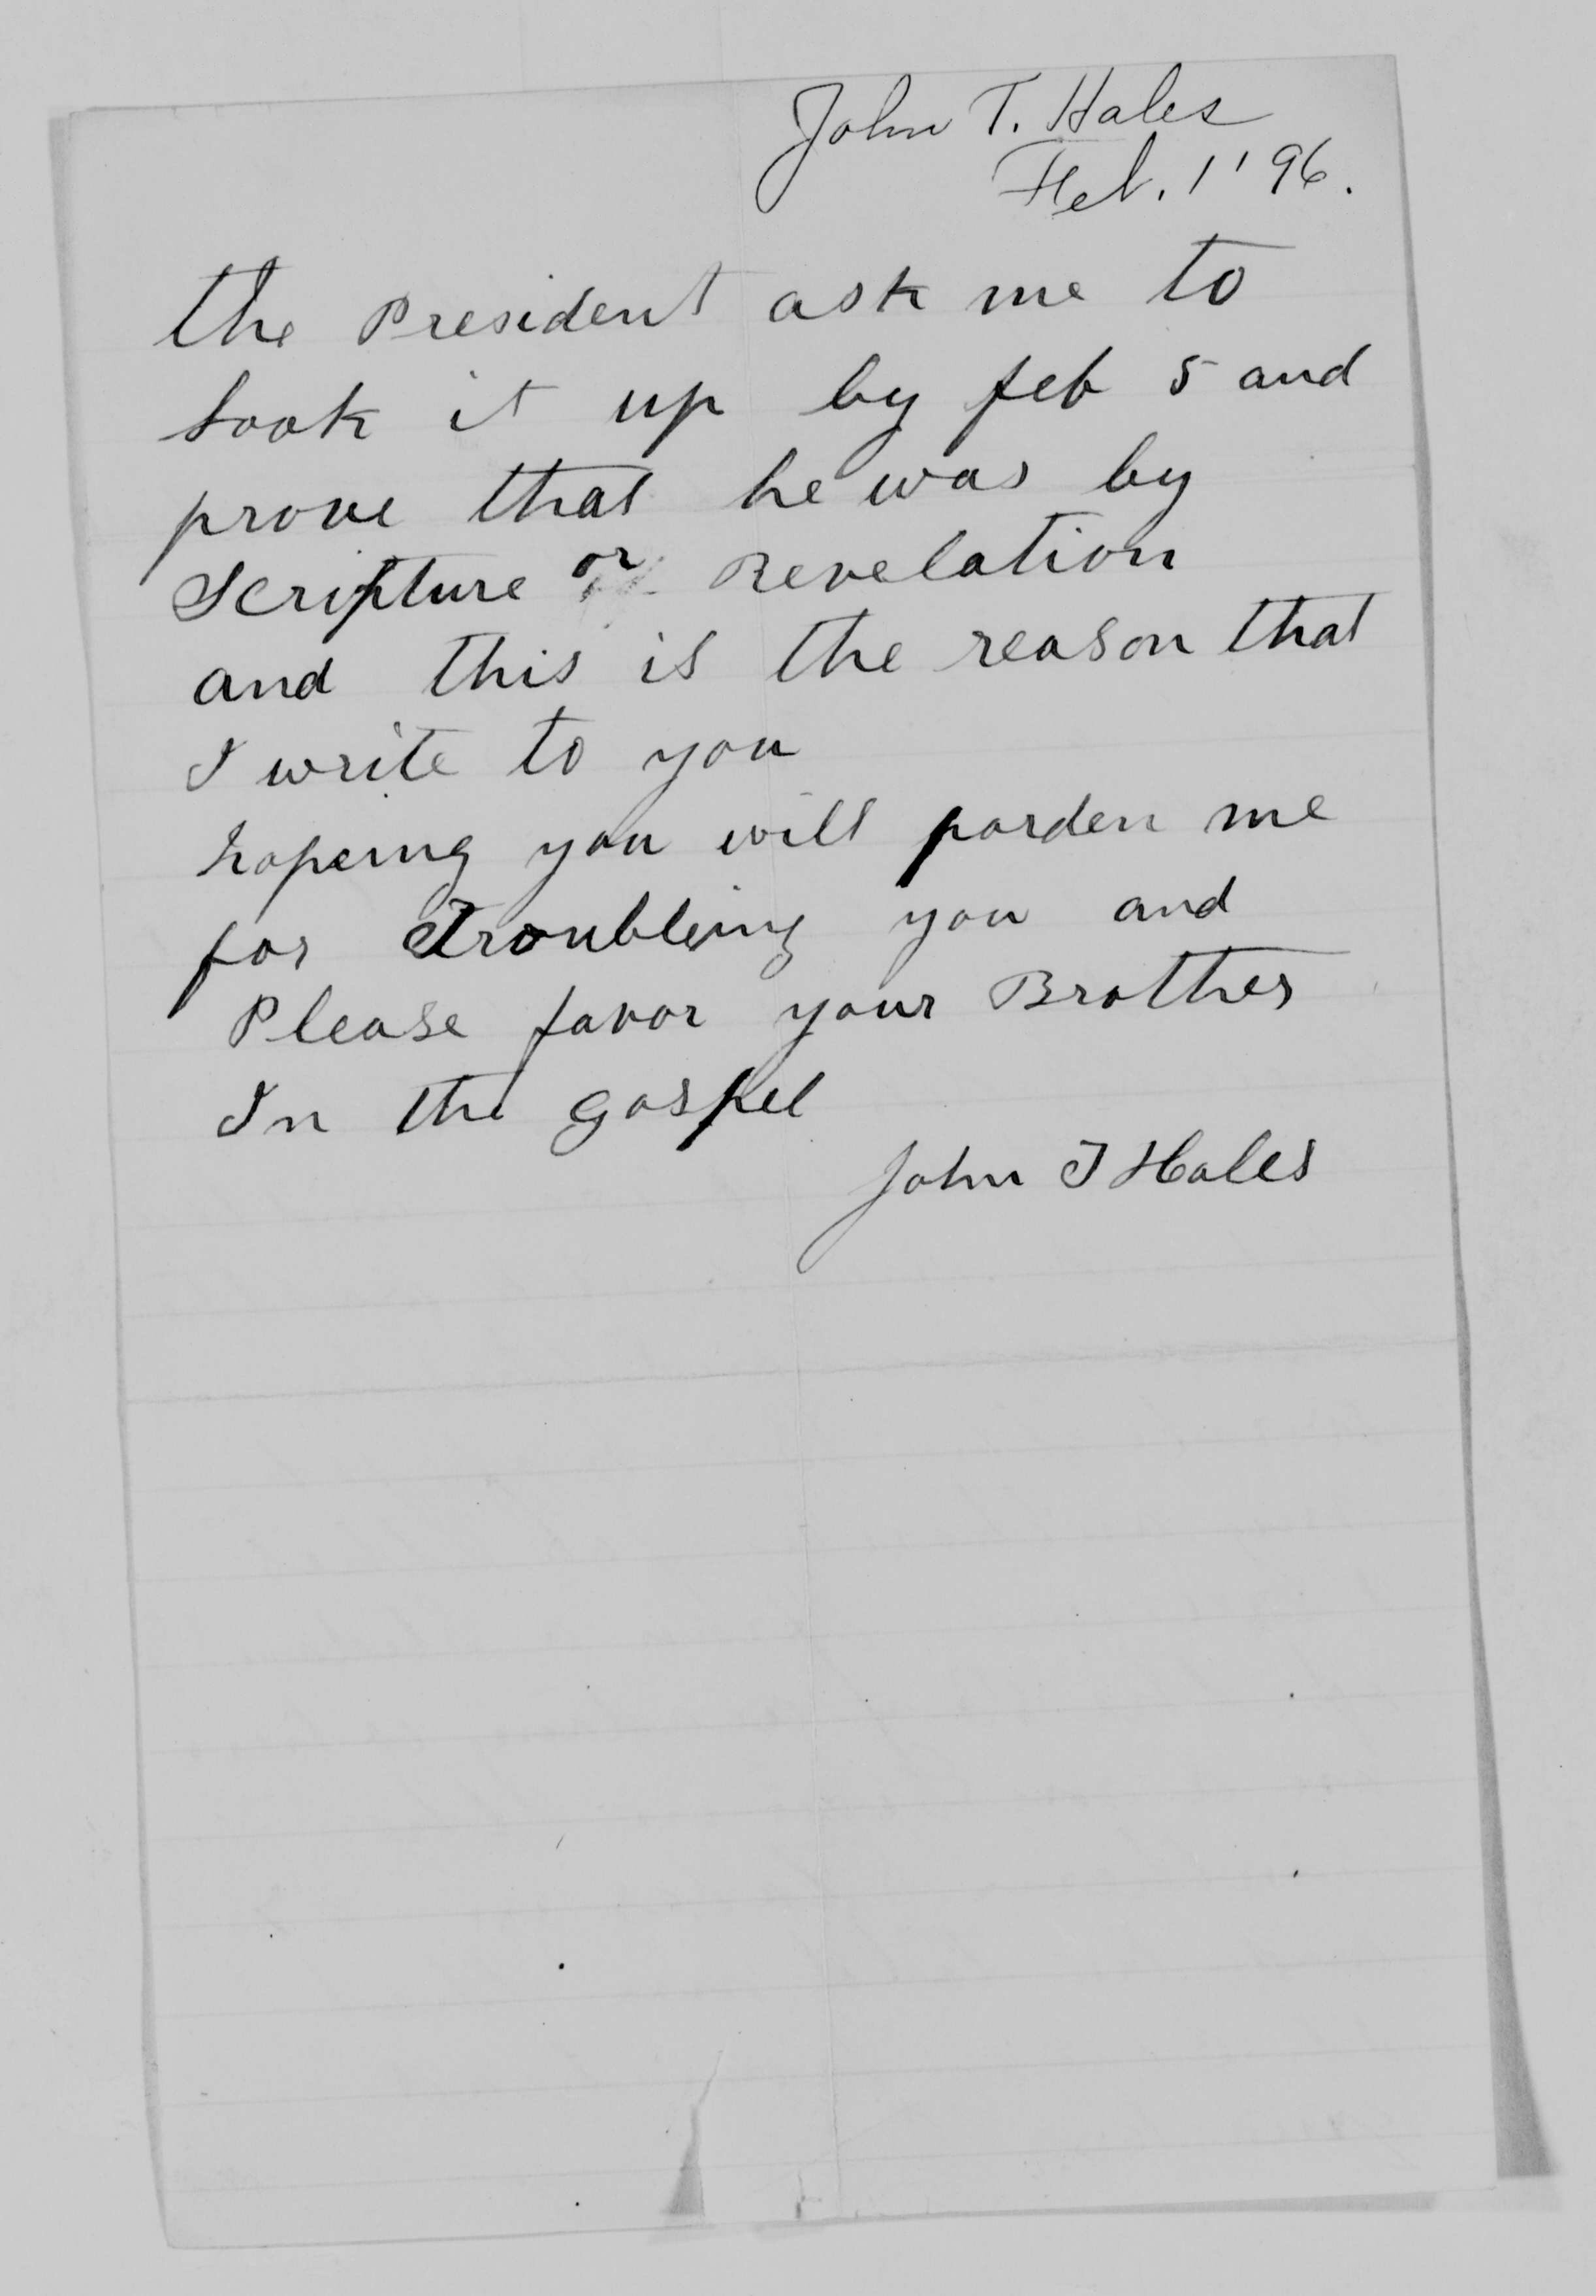 John T. Hales
Feb. 1 '96.
the President ask me to
look it up by feb 5 and
prove that he was by
Scripture or Revelation
and this is the reason that
I write to you
hopeing you will parden me
for Troubleing you and
Please favor your Brother
In the gospel
John T Hales